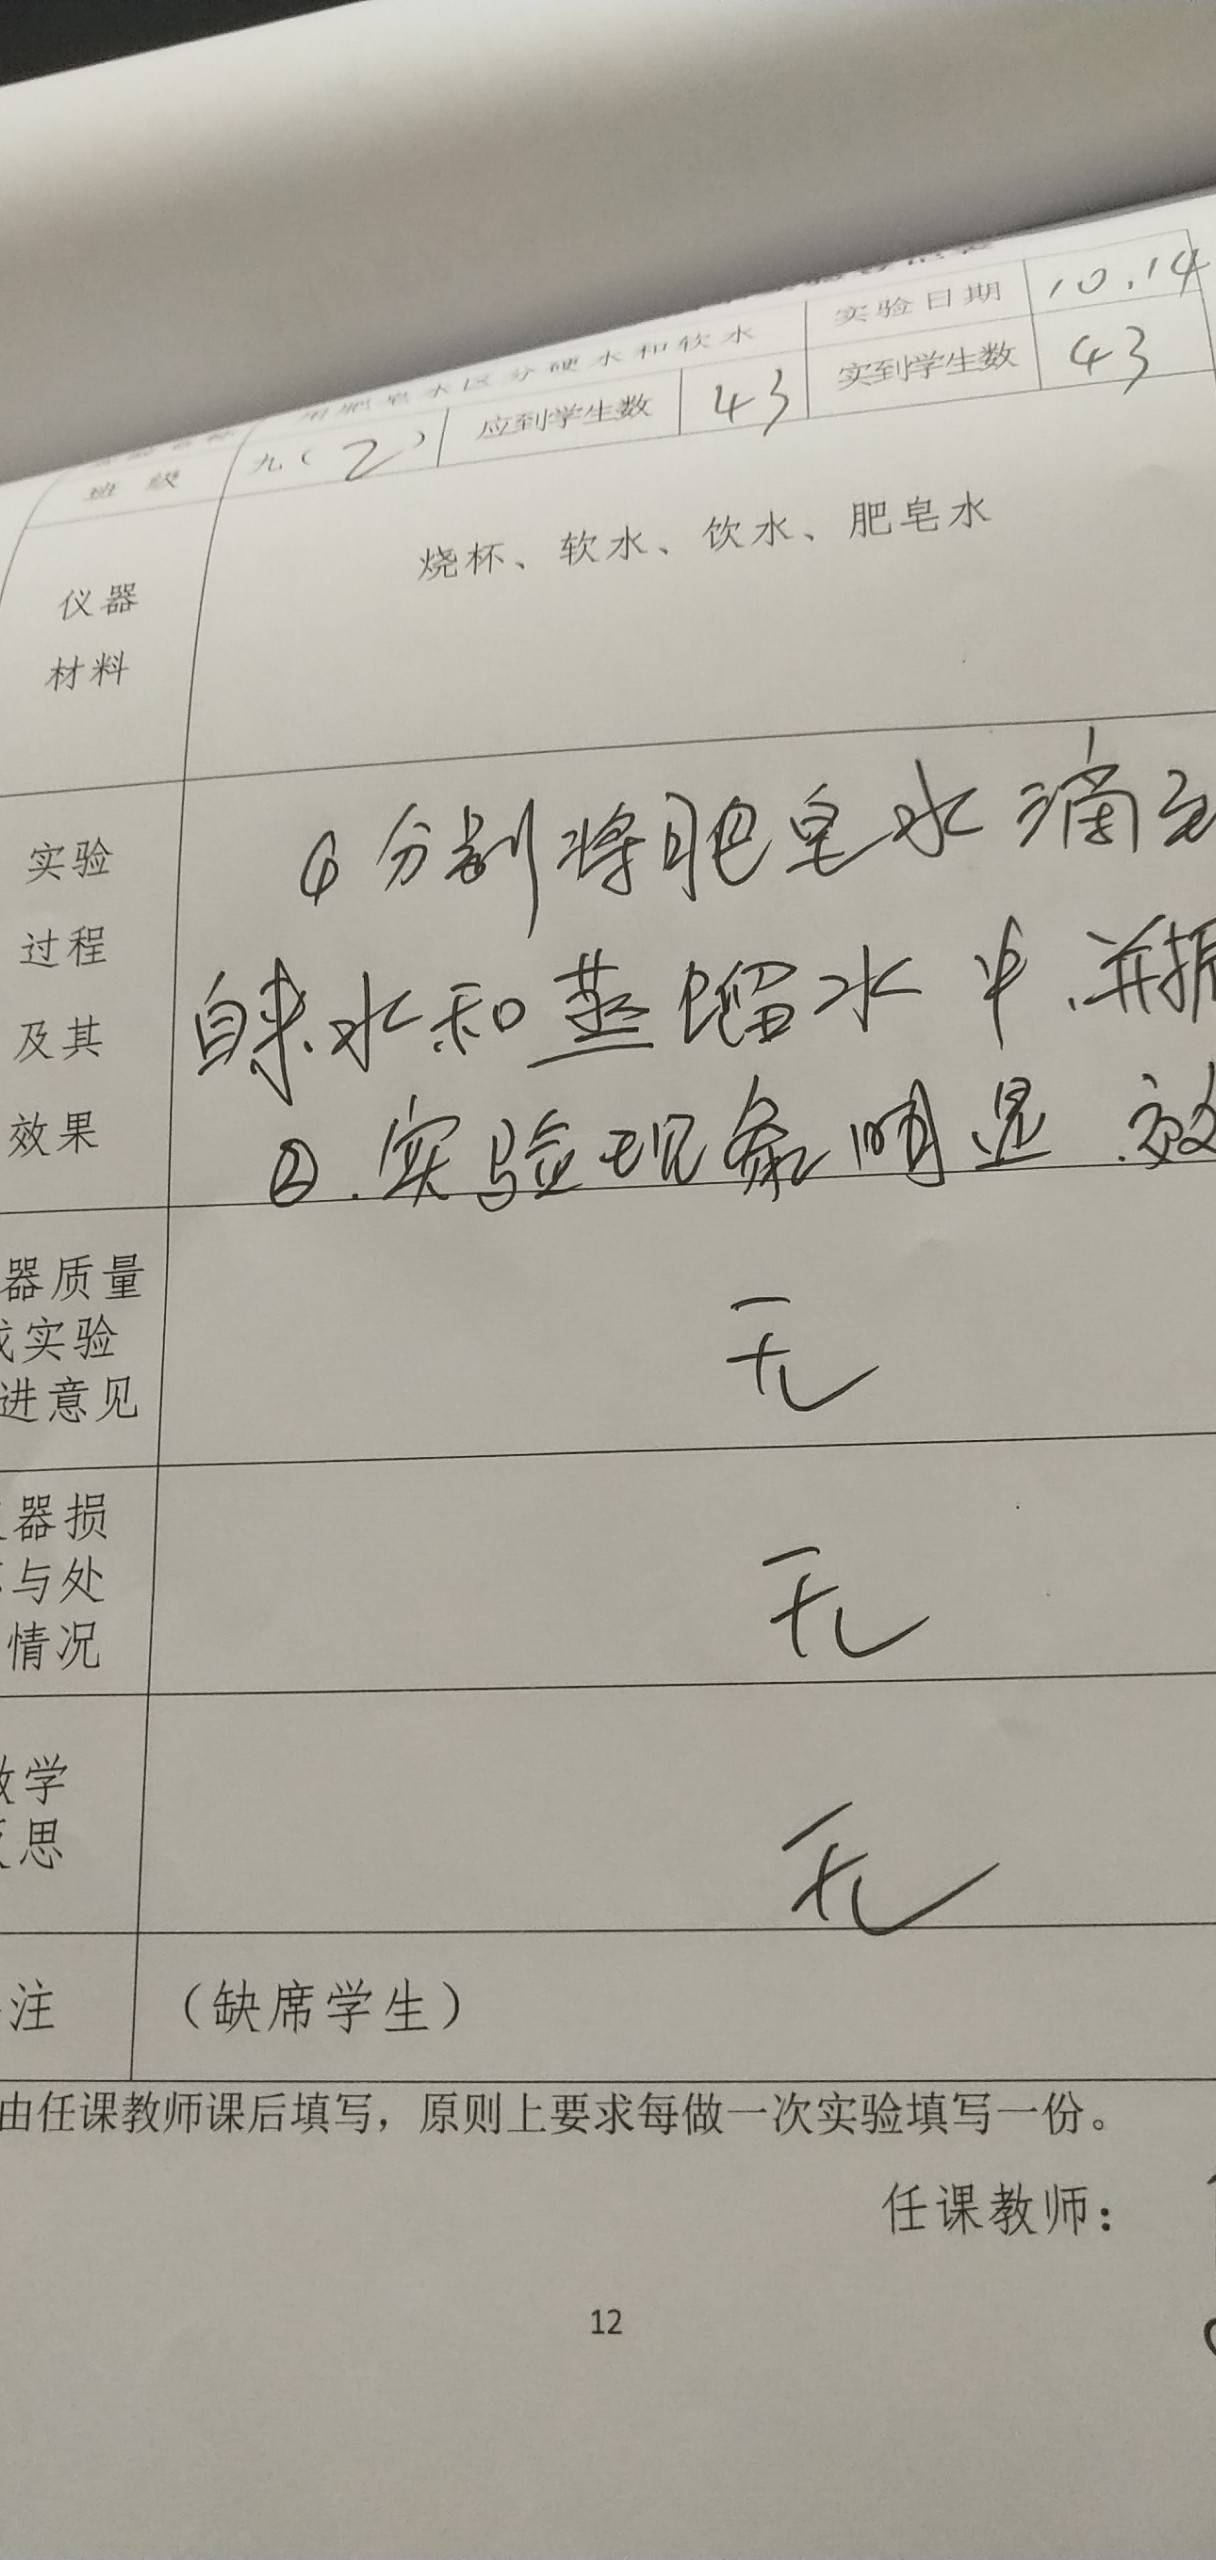 实验日期 10.14
用肥皂水区分硬水和软水
班级 九（2） 应到学生数 43 实到学生数 43
仪器
材料
烧杯、软水、饮水、肥皂水
实验
过程
及其
效果
① 分别将肥皂水滴
自来水和蒸馏水中、并振
②.实验现象明显.效
器质量
实验
进意见
无
器损
与处
情况
无
学
思
无
注
（缺席学生）
由任课教师课后填写，原则上要求每做一次实验填写一份。
任课教师：
12